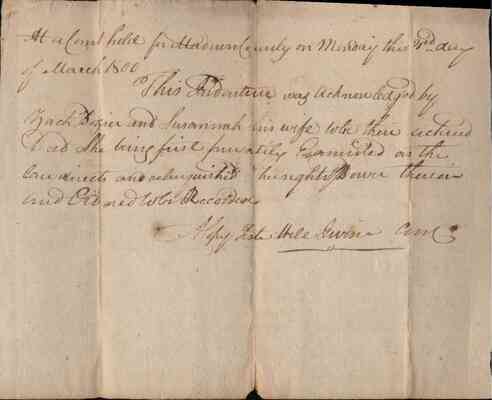 At a Court held for Madison County on Monday this 3rd day
of March 1800
This Indenture was acknowledged by
Zach and Susannah his wife to be their act and
Deed She being first privately Examined as the
law directs and relinquished her right of Dower therein
and Ordered to be Recorded
A Copy Teste Will Irvine